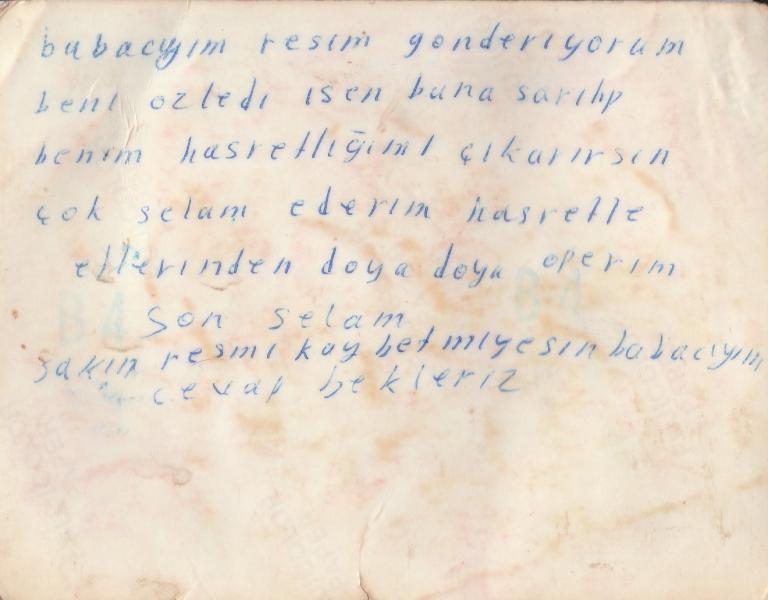 babacıyım resim gonderiyorum
beni ozledi isen bana sarılıp
benim hasretliğimi çıkarırsın
çok selam ederim hasretle
ellerinden doya doya operim
son selam
sakın resmi kaybetmiyesin babacıyım
cevap bekleriz